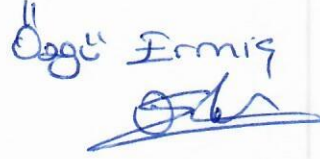 Özgü Ermiş